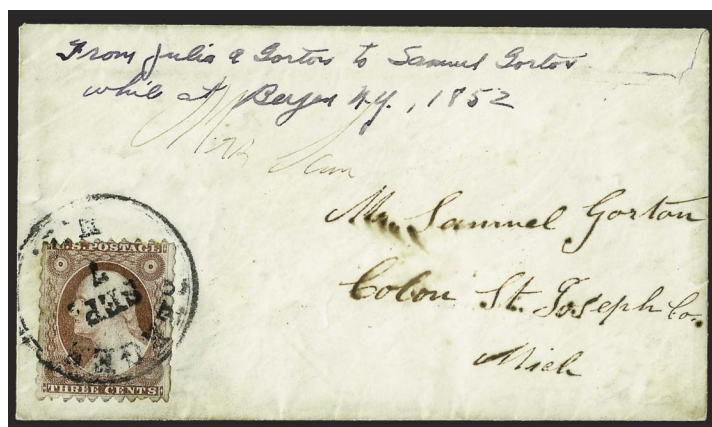 From Julia a Gorton to Samuel Gorton
while at N.Y., 1852
Mr. Samuel Gorton
Colon St. Joseph Co.
Mich
U.S. POSTAGE
SEP
7
THREE CENTS